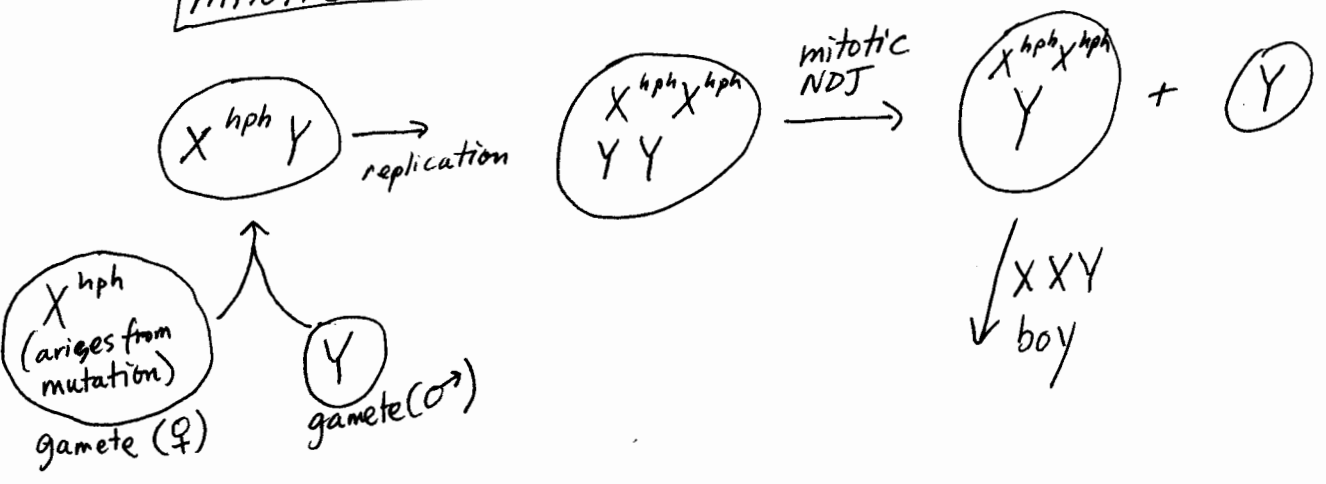 X^hph Y
replication
X^hph X^hph
Y Y
mitotic
NDJ
X^hph X^hph
Y
+
Y
X^hph
(arises from
mutation)
gamete (♀)
Y
gamete (♂)
X X Y
boy